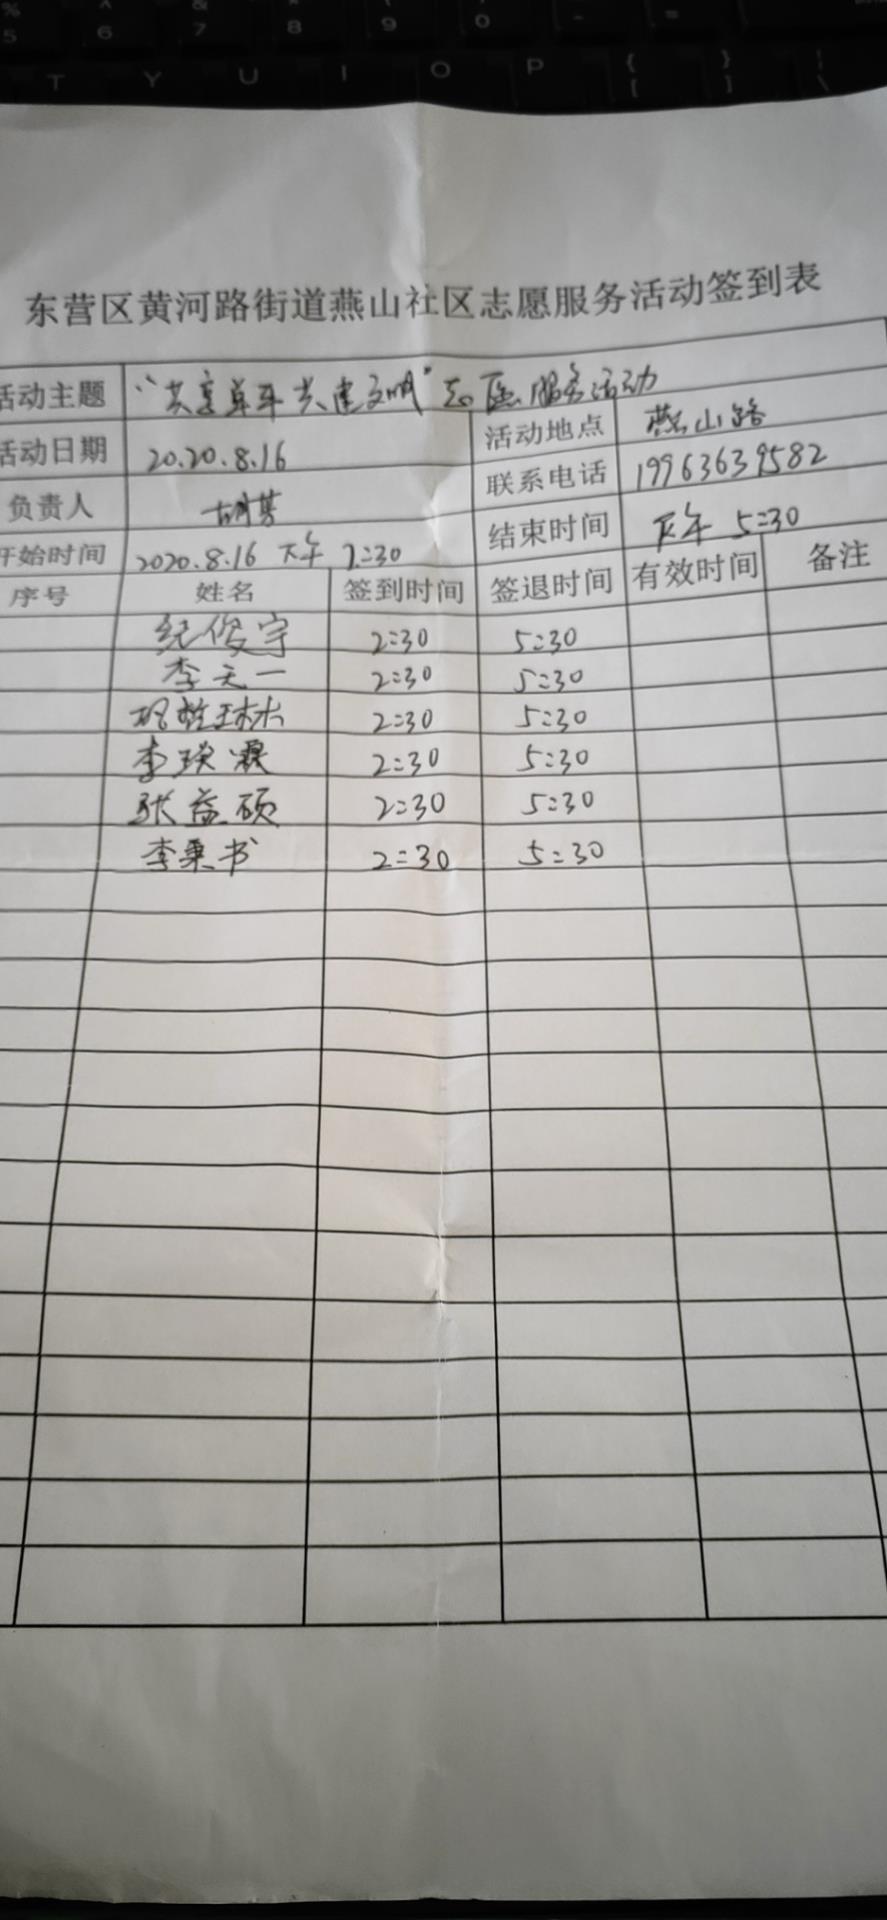 % ^ & * ( ) - =
5 6 7 8 9 0
T Y U I O P { [ } ] | \
东营区黄河路街道燕山社区志愿服务活动签到表
活动主题 “共享单车共建文明”志愿服务活动
活动日期 2020.8.16 活动地点 燕山路
负责人 联系电话 19963639582
开始时间 2020.8.16 下午 2:30 结束时间 下午 5:30
序号 姓名 签到时间 签退时间 有效时间 备注
纪俊宇 2:30 5:30
李天一 2:30 5:30
2:30 5:30
李琰霖 2:30 5:30
张益硕 2:30 5:30
李秉书 2:30 5:30